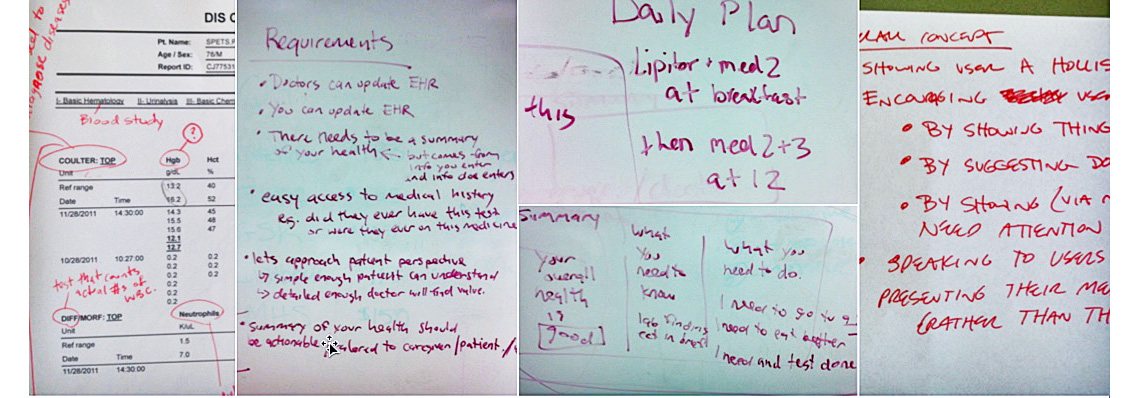 diagnose diseases
DIS
Pt. Name: SPETS,
Age / Sex: 76/M
Report ID: CJ77531
I- Basic Hematology II- Urinalysis III- Basic Chem
Blood study
?
COULTER: TOP Hgb Hct
Unit g/dL %
Ref range 13.2 40
Date Time 16.2 52
11/28/2011 14:30:00 14.3 45
15.5 48
15.6 47
12.1
12.7
10/28/2011 10:27:00 0.2 0.2
0.2 0.2
0.2 0.2
0.2
0.2
test that counts
actual #s of
WBC.
DIFF/MORF: TOP Neutrophils
Unit K/uL
Ref range 1.5
Date Time 7.0
11/28/2011 14:30:00
Requirements
• Doctors can update EHR
• You can update EHR
• There needs to be a summary
of your health ← but comes from
info you enter
and info doc enters
• easy access to medical history
eg. did they ever have this test
or were they ever on this medicine
• lets approach patient perspective
↳ simple enough patient can understand
↳ detailed enough doctor will find value.
• summary of your health should
be actionable tailored to caregiver/patient/
Daily Plan
this
Lipitor + med 2
at breakfast
then med 2+3
at 12
Summary
Your
overall
health
is
[good]
what
you
need to
know
lab finding
what you
need to do.
I need to go to a
I need to eat another
I need and test done
CONCEPT
SHOWING USER A HOLIS
ENCOURAGING USE
• BY SHOWING THING
• BY SUGGESTING DO
• BY SHOWING (VIA
NEED ATTENTION
• SPEAKING TO USERS
PRESENTING THEIR ME
(RATHER THAN TH